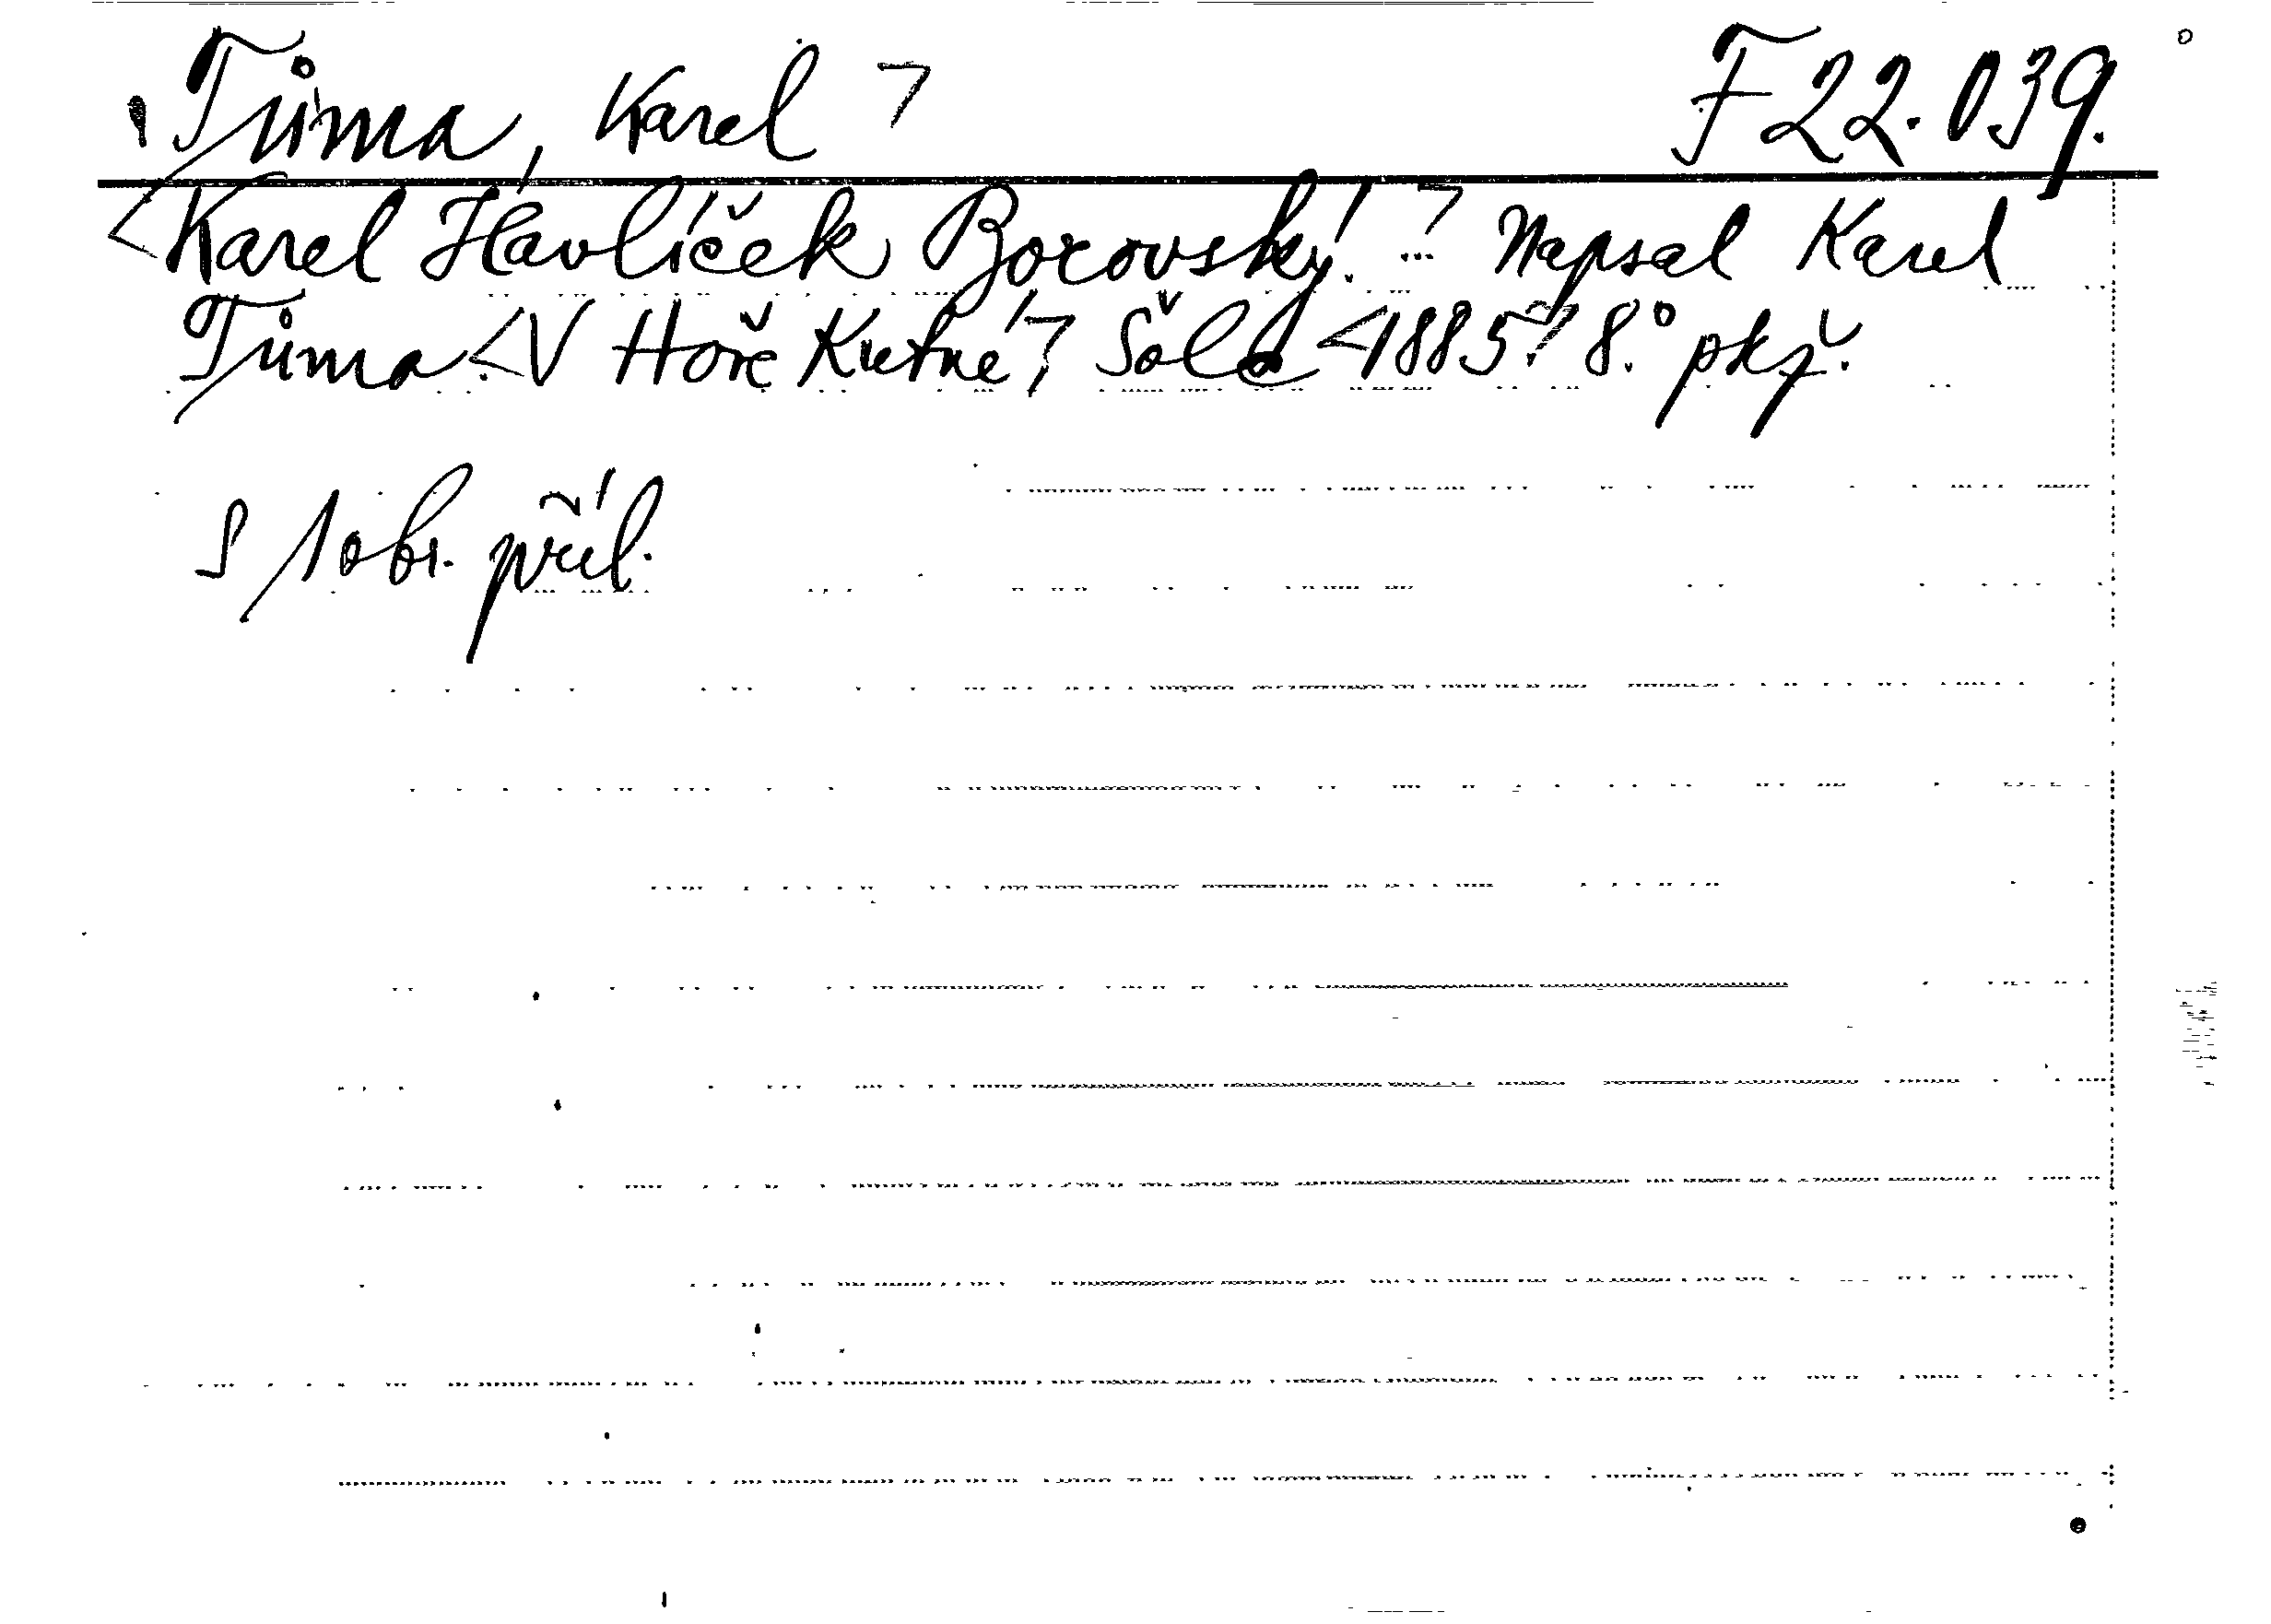 Tůma, Karel F 22.039.
<Karel Havlíček Borovský. ...> Napsal Karel
Tůma. <V Hoře Kutné> Šolc <1885> 8.° pkž.
S 1 obr. příl.